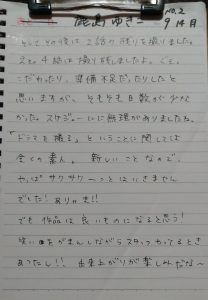 鹿島ゆきこ
no.2
9月14日
そしてその後は2話の残りを撮りました。
ええ。4話は撮り残しましたよ。くそ。
こだわったり、準備不足だったりしたと
思いますが、そもそも日数が少な
かった。スケジュールに無理がありましたね。
「ドラマを撮る」ということに関しては
全くの素人。新しいことなので、
やっぱサクサクーことはいきません
でした！ありゃま!!
でも作品は良いものになると思う！
笑いをがまんしながらスタッフやってるとき
あったし!!出来上がりが楽しみだな〜